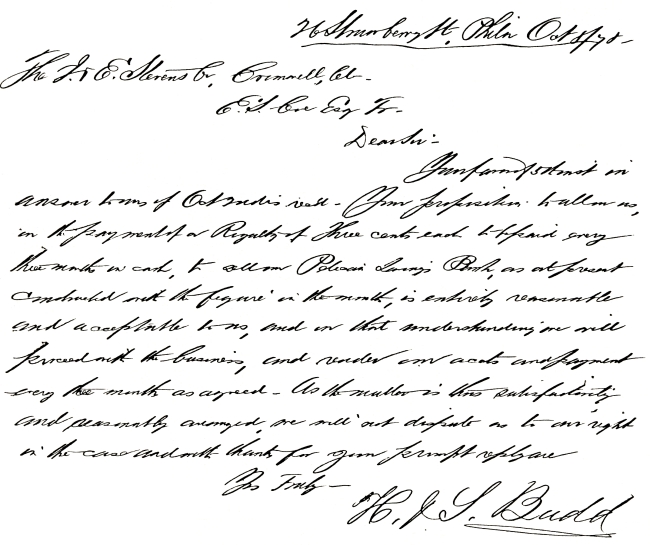 26 Strawberry St, Phila Oct 8/78-
The J. & E. Stevens Co, Cromwell, Ct-
E. S. Coe Esq Tr-
Dear Sir:-
Your favor of 5th inst in
answer to ours of Oct 2nd is recd- Your proposition to allow us,
in the payment of a Royalty of Three cents each to be paid every
three months in cash, to allow Pelican Savings Bank, as at present
constructed with the figure in the mouth, is entirely reasonable
and acceptable to us, and on that understanding we will
proceed with the business, and render our accts and payment
every three months as agreed- As the matter is thus satisfactorily
and reasonably arranged, we will not dispute as to our right
in the case and with thanks for your prompt reply are
Yrs Truly-
H. J. S. Budd